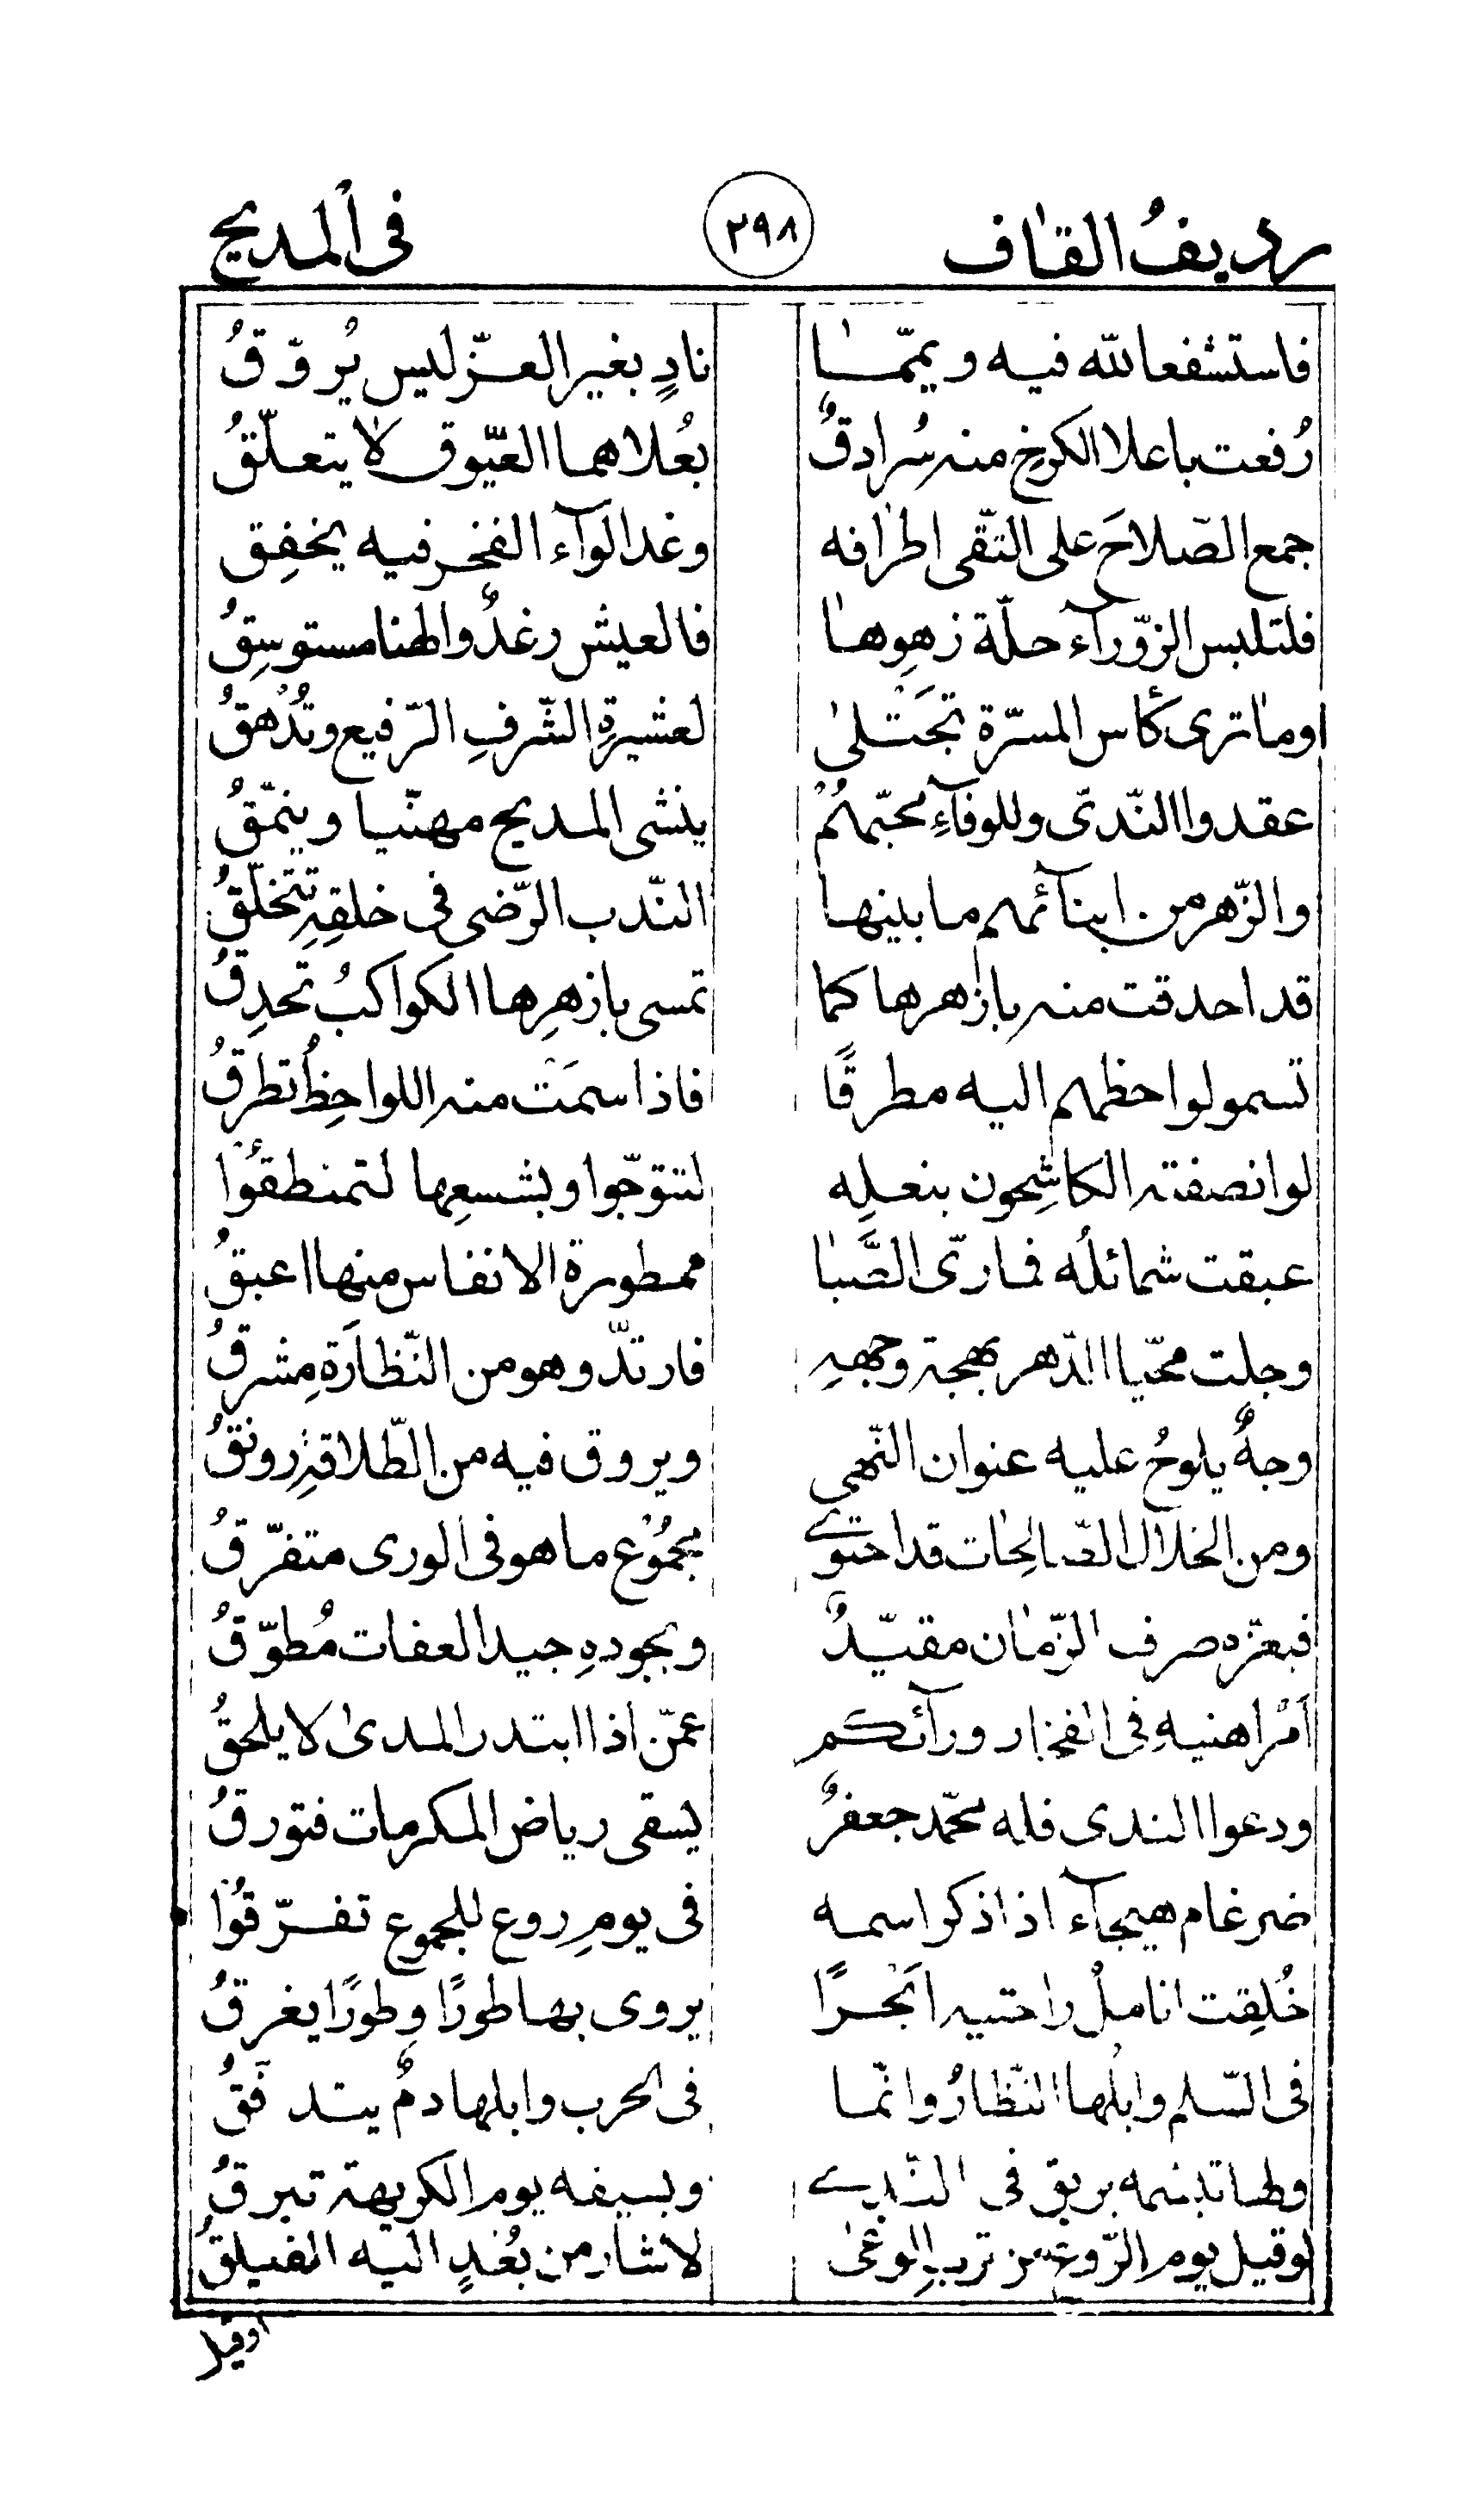 رديفُ القاف ٣٩٨ فى المديح
فاستشفعا للّه فيه ويمّما نادٍ بغير العزّ ليس يُروّقُ
رُفعت باعلا الكرخ منه سُرادقٌ بعُلاهما العيّوق لا يتعلّقُ
جمع الصّلاحَ على التّقى اطرافه وغدا لوآء الفخر فيه يخفِق
فلتلبس الزّورآء حلّة زهوِها فالعيش رغدٌ والهنا مستوسِقُ
اوما ترى كأس المسرّة تجتلى لعشيرةِ الشّرفِ الرّفيع وتُدْهقُ
عقدوا النّدىّ وللوفآءِ محبّهُمْ ينشى المديح مهنّيا وينمّقُ
والزّهر من ابنآئهم ما بينها النّدب الرّضى فى خلقِهِ تتخلّقُ
قد احدقت منه بازاهرها كما تمسى بازهرِها الكواكبُ تحدِقُ
تسمو لواحظهم اليه مطرقًا فاذا سمَتْ منه اللواحظُ تطرقُ
لو انصفته الكاشِحون بنعلِه لتتوّجوا وبشسعِها لتمنطقُوا
عبقت شمائلُه فما ريّى الصَّبا ممطورة الانفاس منها اعبقُ
وجلت محيّا الدّهر بهجة وجههِ فارتدّ وهو من النّظارَةِ مشرقُ
وجهٌ يلوحُ عليه عنوان النّهى ويروق فيه من الطّلاقةِ رونقُ
ومن الخلال الصّالحات قد احتوى مجمُوع ما هو فى الورى متفرّقُ
فبعزّه صرف الزّمان مقيّدٌ وبجودهِ جيد العفات مُطوّقُ
أمْراهنيهِ فى الفخار ورآئكم عمّن اذا ابتدر المدى لا يلحقُ
ودعوا الندى فله محمّد جعفرٌ يسقى رياض المكرمات فتورقُ
ضرغام هيجآء اذا ذكر اسمه فى يومِ روع للجموع تفرّقُوا
خُلِقت اناملُ راحتيه ابحرًا يروى بها طورًا وطورًا يغرقُ
فى السّلم وابلُها النّظارُ وانّما فى الحرب وابلها دمٌ يتدفّقُ
وظبا تبسّمه بريق فى النّدى وبسيفه يوم الكريهة تبرقُ
لو قيل يوم الرّوع من ترب الوغى لاشار من بُعدٍ اليه الفيلقُ